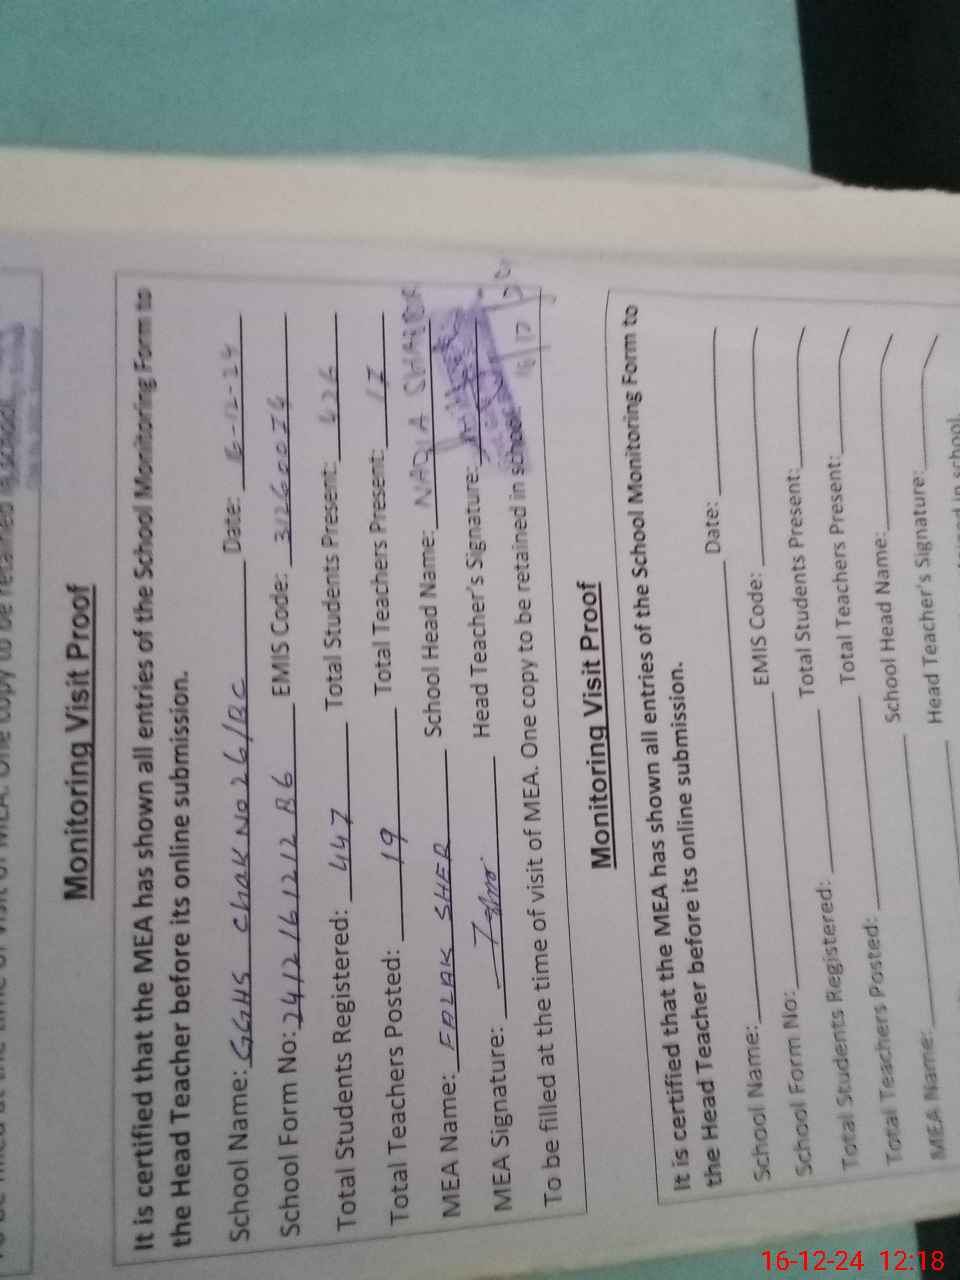 Monitoring Visit Proof
It is certified that the MEA has shown all entries of the School Monitoring Form to
the Head Teacher before its online submission.
School Name: GGHS Chak No 26/BC Date: 16-12-24
School Form No: 2412161212 B6 EMIS Code: 31260074
Total Students Registered: 447 Total Students Present:
Total Teachers Posted: 19 Total Teachers Present: 17
MEA Name: FALAK SHER School Head Name: NADIA
MEA Signature: Head Teacher's Signature:
To be filled at the time of visit of MEA. One copy to be retained in school.
Monitoring Visit Proof
It is certified that the MEA has shown all entries of the School Monitoring Form to
the Head Teacher before its online submission.
School Name: Date:
School Form No: EMIS Code:
Total Students Registered: Total Students Present:
Total Teachers Posted: Total Teachers Present:
MEA Name: School Head Name:
Head Teacher's Signature:
16-12-24 12:18